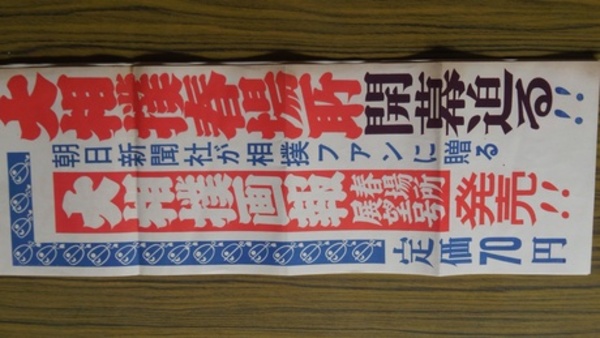 大相撲春場所開幕迫る!!
朝日新聞社が相撲ファンに贈る
大相撲画報春場所展望号発売!!
定価70円